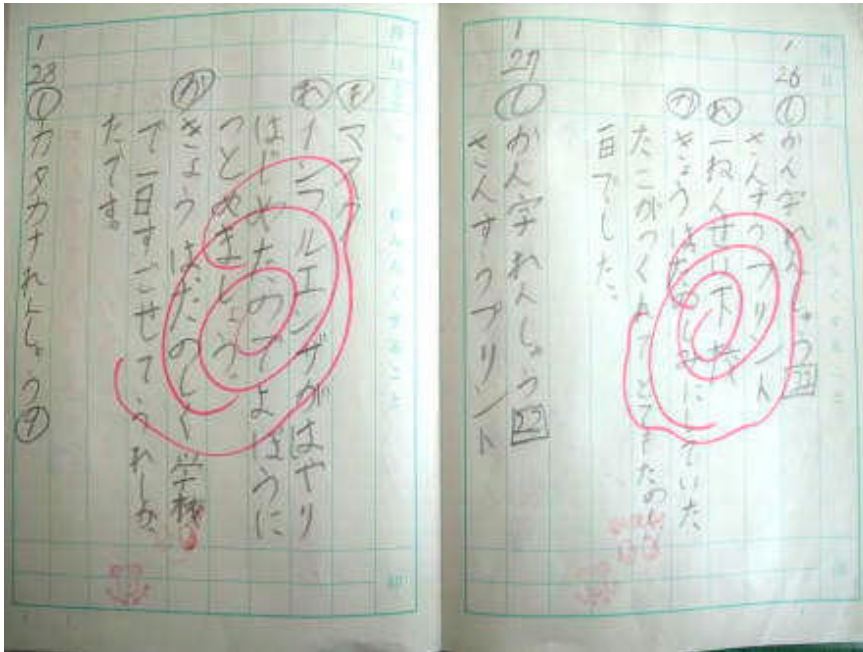 1
26
し かん字れんしゅう 22
さんすうプリント
お 一ねんせい下校
か きょうはたのしみにしていた
たこがつくれてとてもたのしい
一日でした。
1
27
し かん字れんしゅう 22
さんすうプリント
も マスク
お インフルエンザがはやり
はじめたのでよぼうに
つとめましょう。
か きょうはたのしく学校
で一日すごせてうれしかっ
たです。
1
28
し カタカナれんしゅう